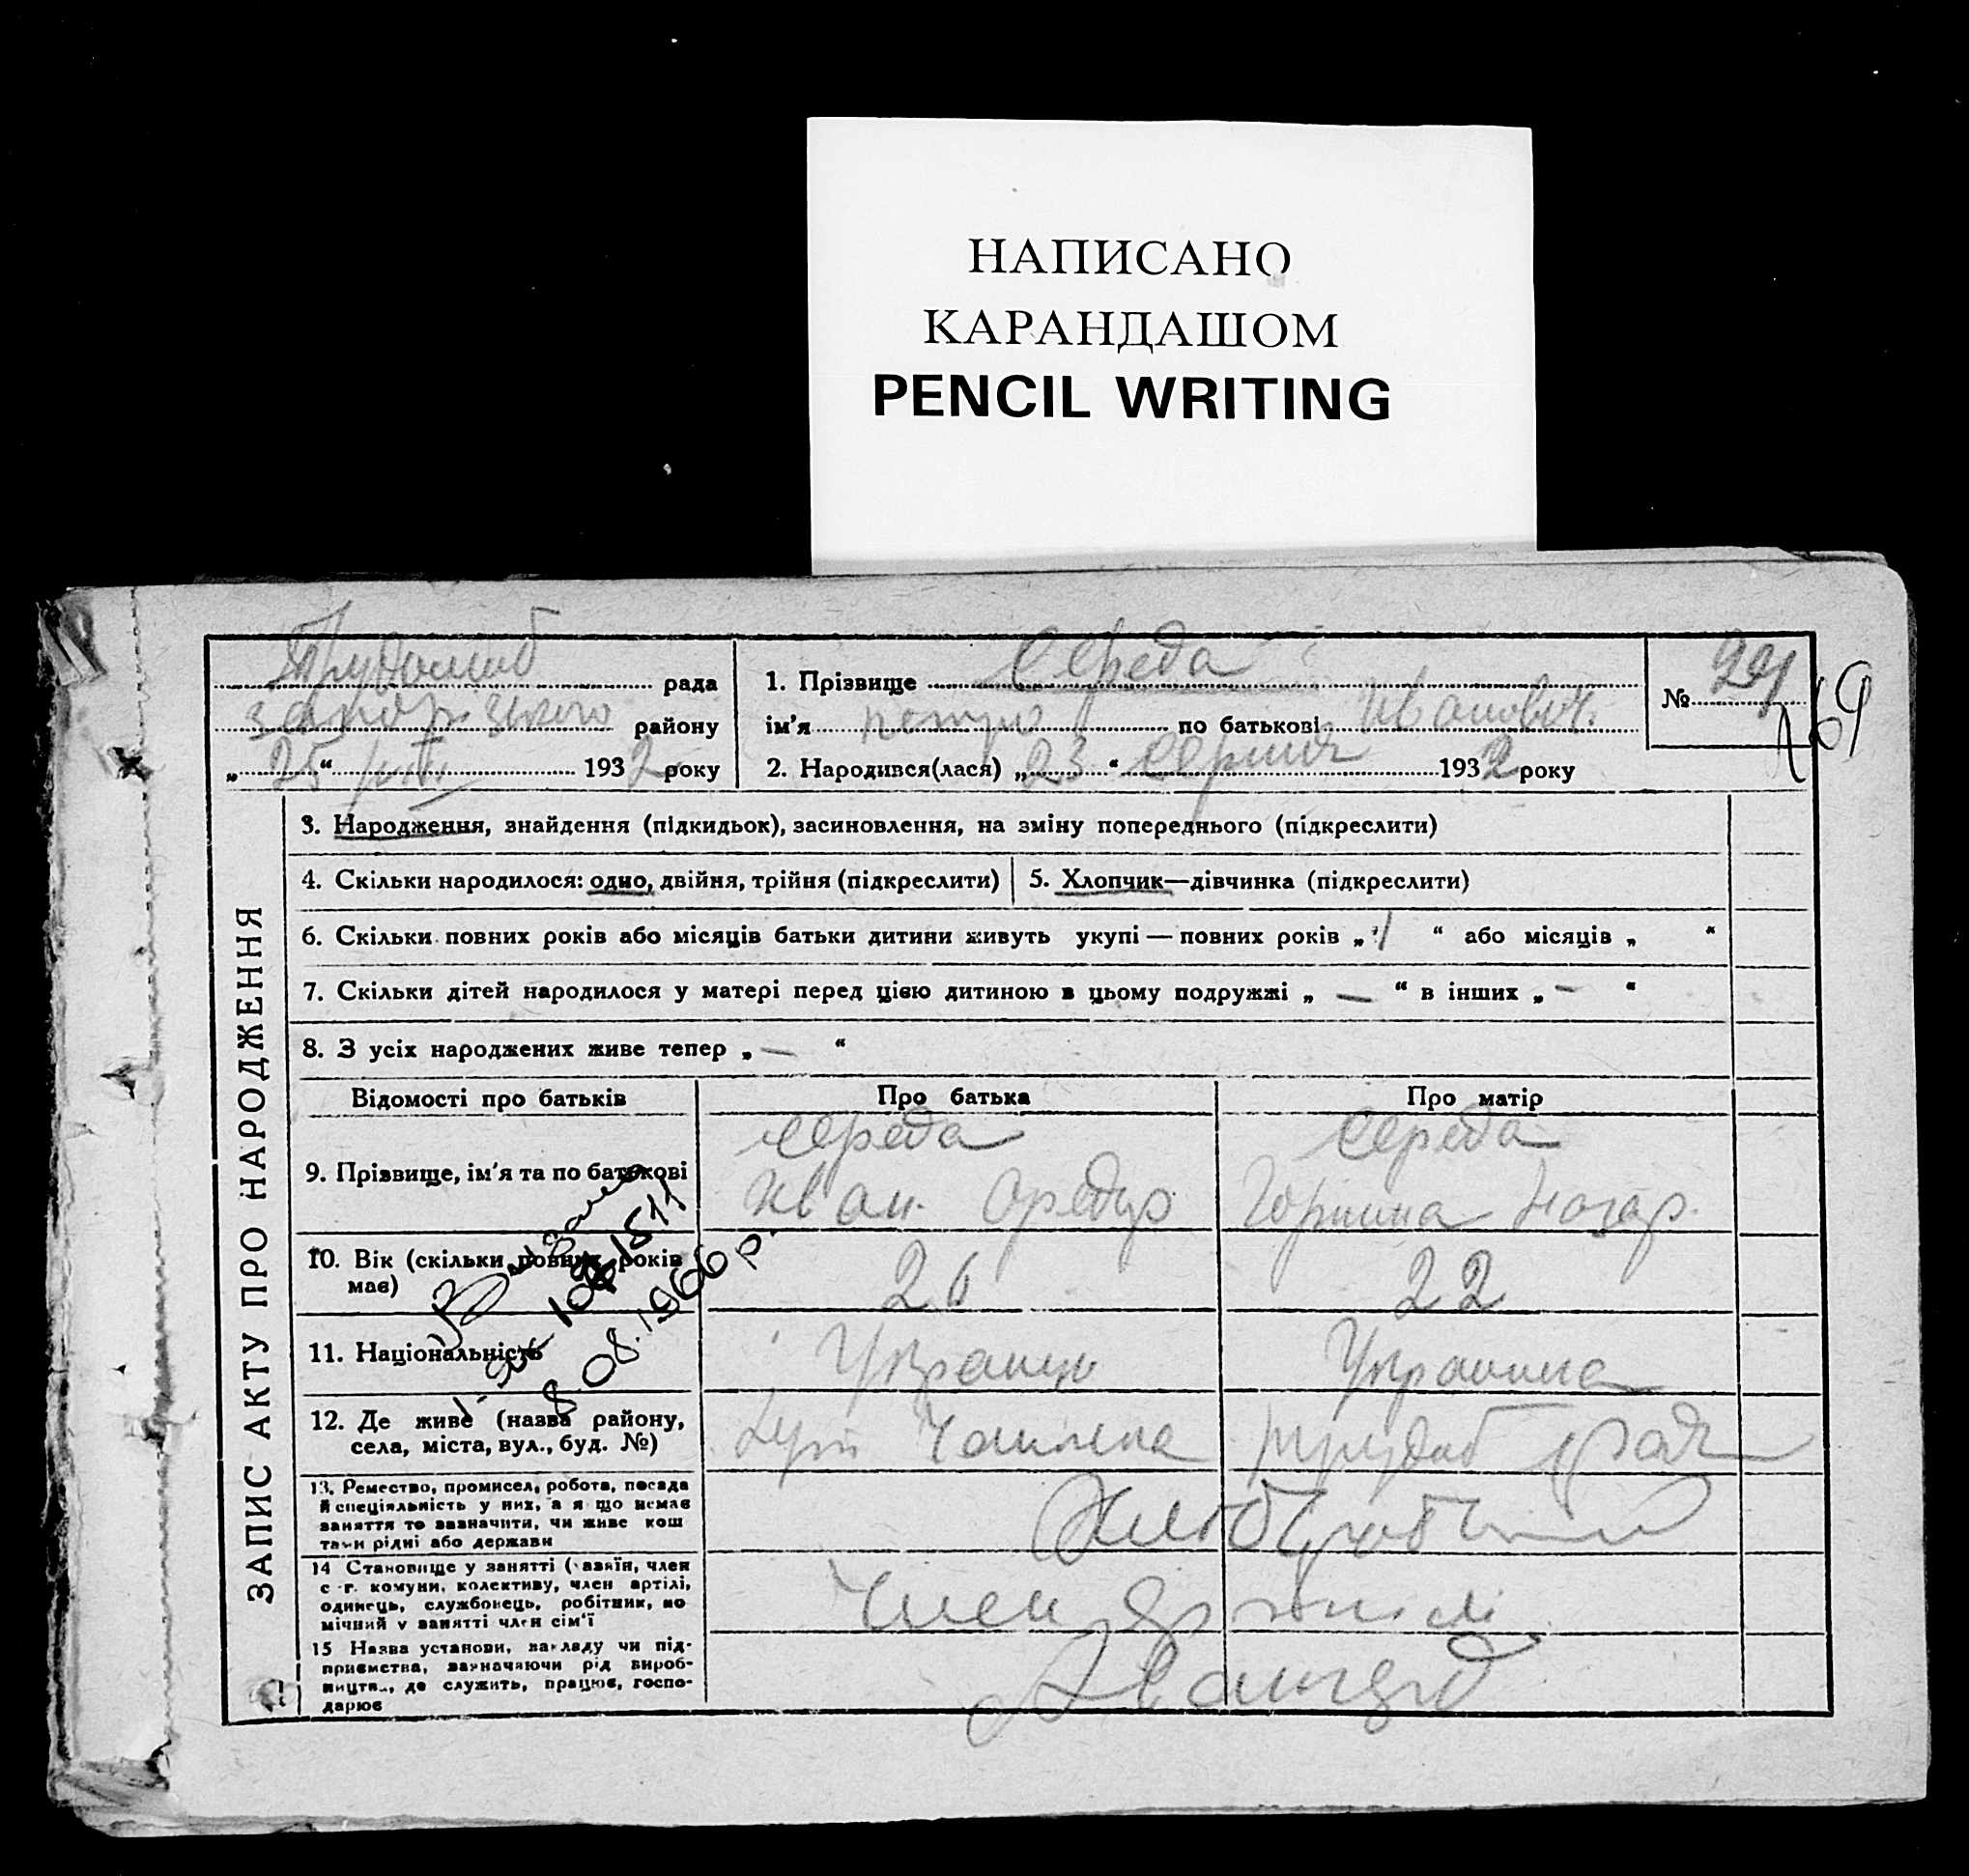 НАПИСАНО
КАРАНДАШОМ
PENCIL WRITING
рада
району
„ 25 “ VIII 1932 року
1. Прізвище Середа
ім'я Петро по батькові Иванович
2. Народився(лася) „ 23 “ Серпня 1932 року
№ 29
169
ЗАПИС АКТУ ПРО НАРОДЖЕННЯ
3. Народження, знайдення (підкидьок), засиновлення, на зміну попереднього (підкреслити)
4. Скільки народилося: одно, двійня, трійня (підкреслити)
5. Хлопчик—дівчинка (підкреслити)
6. Скільки повних років або місяців батьки дитини живуть укупі — повних років „ 1 “ або місяців „ “
7. Скільки дітей народилося у матері перед цією дитиною в цьому подружжі „ — “ в інших „ — “
8. З усіх народжених живе тепер „ — “
Відомості про батьків
Про батька
Про матір
9. Прізвище, ім'я та по батькові
Середа
Иван
Середа
Горпина
10. Вік (скільки повних років має)
26
22
11. Національність
Украинец
Украинка
8.08.1966 р.
12. Де живе (назва району,
села, міста, вул., буд. №)
13. Ремество, промисел, робота, посада
й спеціяльність у них, а якщо немає
заняття то зазначити, чи живе кош
тами рідні або держави
Хлібороб
14 Становище у занятті (хазяїн, член
с.-г. комуни, колективу, член артілі,
одинець, службовець, робітник, по
мічний у занятті член сім'ї
Член артілі
15 Назва установи, закладу чи під-
приємства, зазначаючи рід вироб-
ництва, де служить, працює, госпо-
дарює